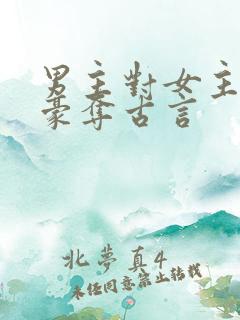 男主對女主
豪奪古言
北夢真4
未經同意禁止轉載